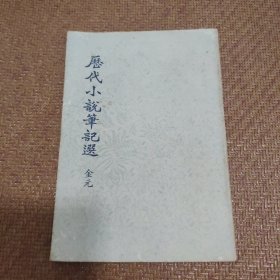 歷代小說筆記選
金元